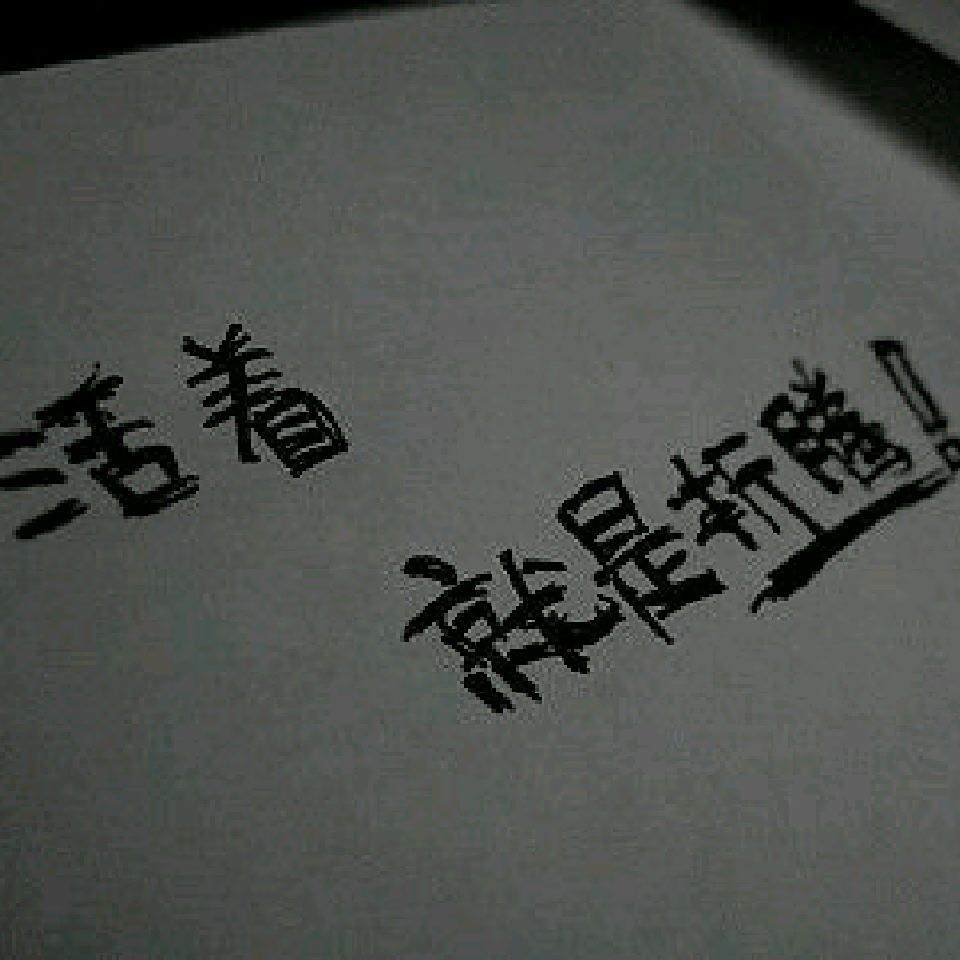 活着
就是折腾！